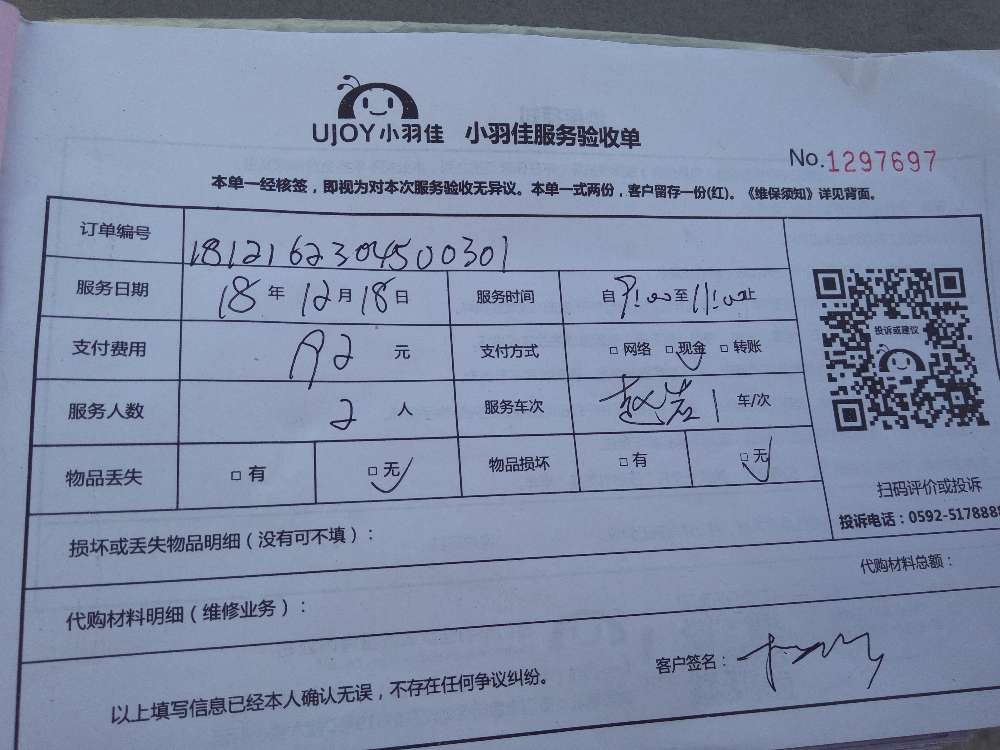 UJOY小羽佳 小羽佳服务验收单
No.1297697
本单一经核签，即视为对本次服务验收无异议。本单一式两份，客户留存一份(红)。《维保须知》详见背面。
订单编号 1812162304500301
服务日期 18年12月18日 服务时间 自9:00至11:00止
投诉或建议
支付费用 元 支付方式 □网络 □现金 □转账
服务人数 2人 服务车次 1 车/次
物品丢失 □有 □无 物品损坏 □有 □无
扫码评价或投诉
投诉电话：0592-5178888
损坏或丢失物品明细（没有可不填）：
代购材料总额：
代购材料明细（维修业务）：
客户签名：
以上填写信息已经本人确认无误，不存在任何争议纠纷。